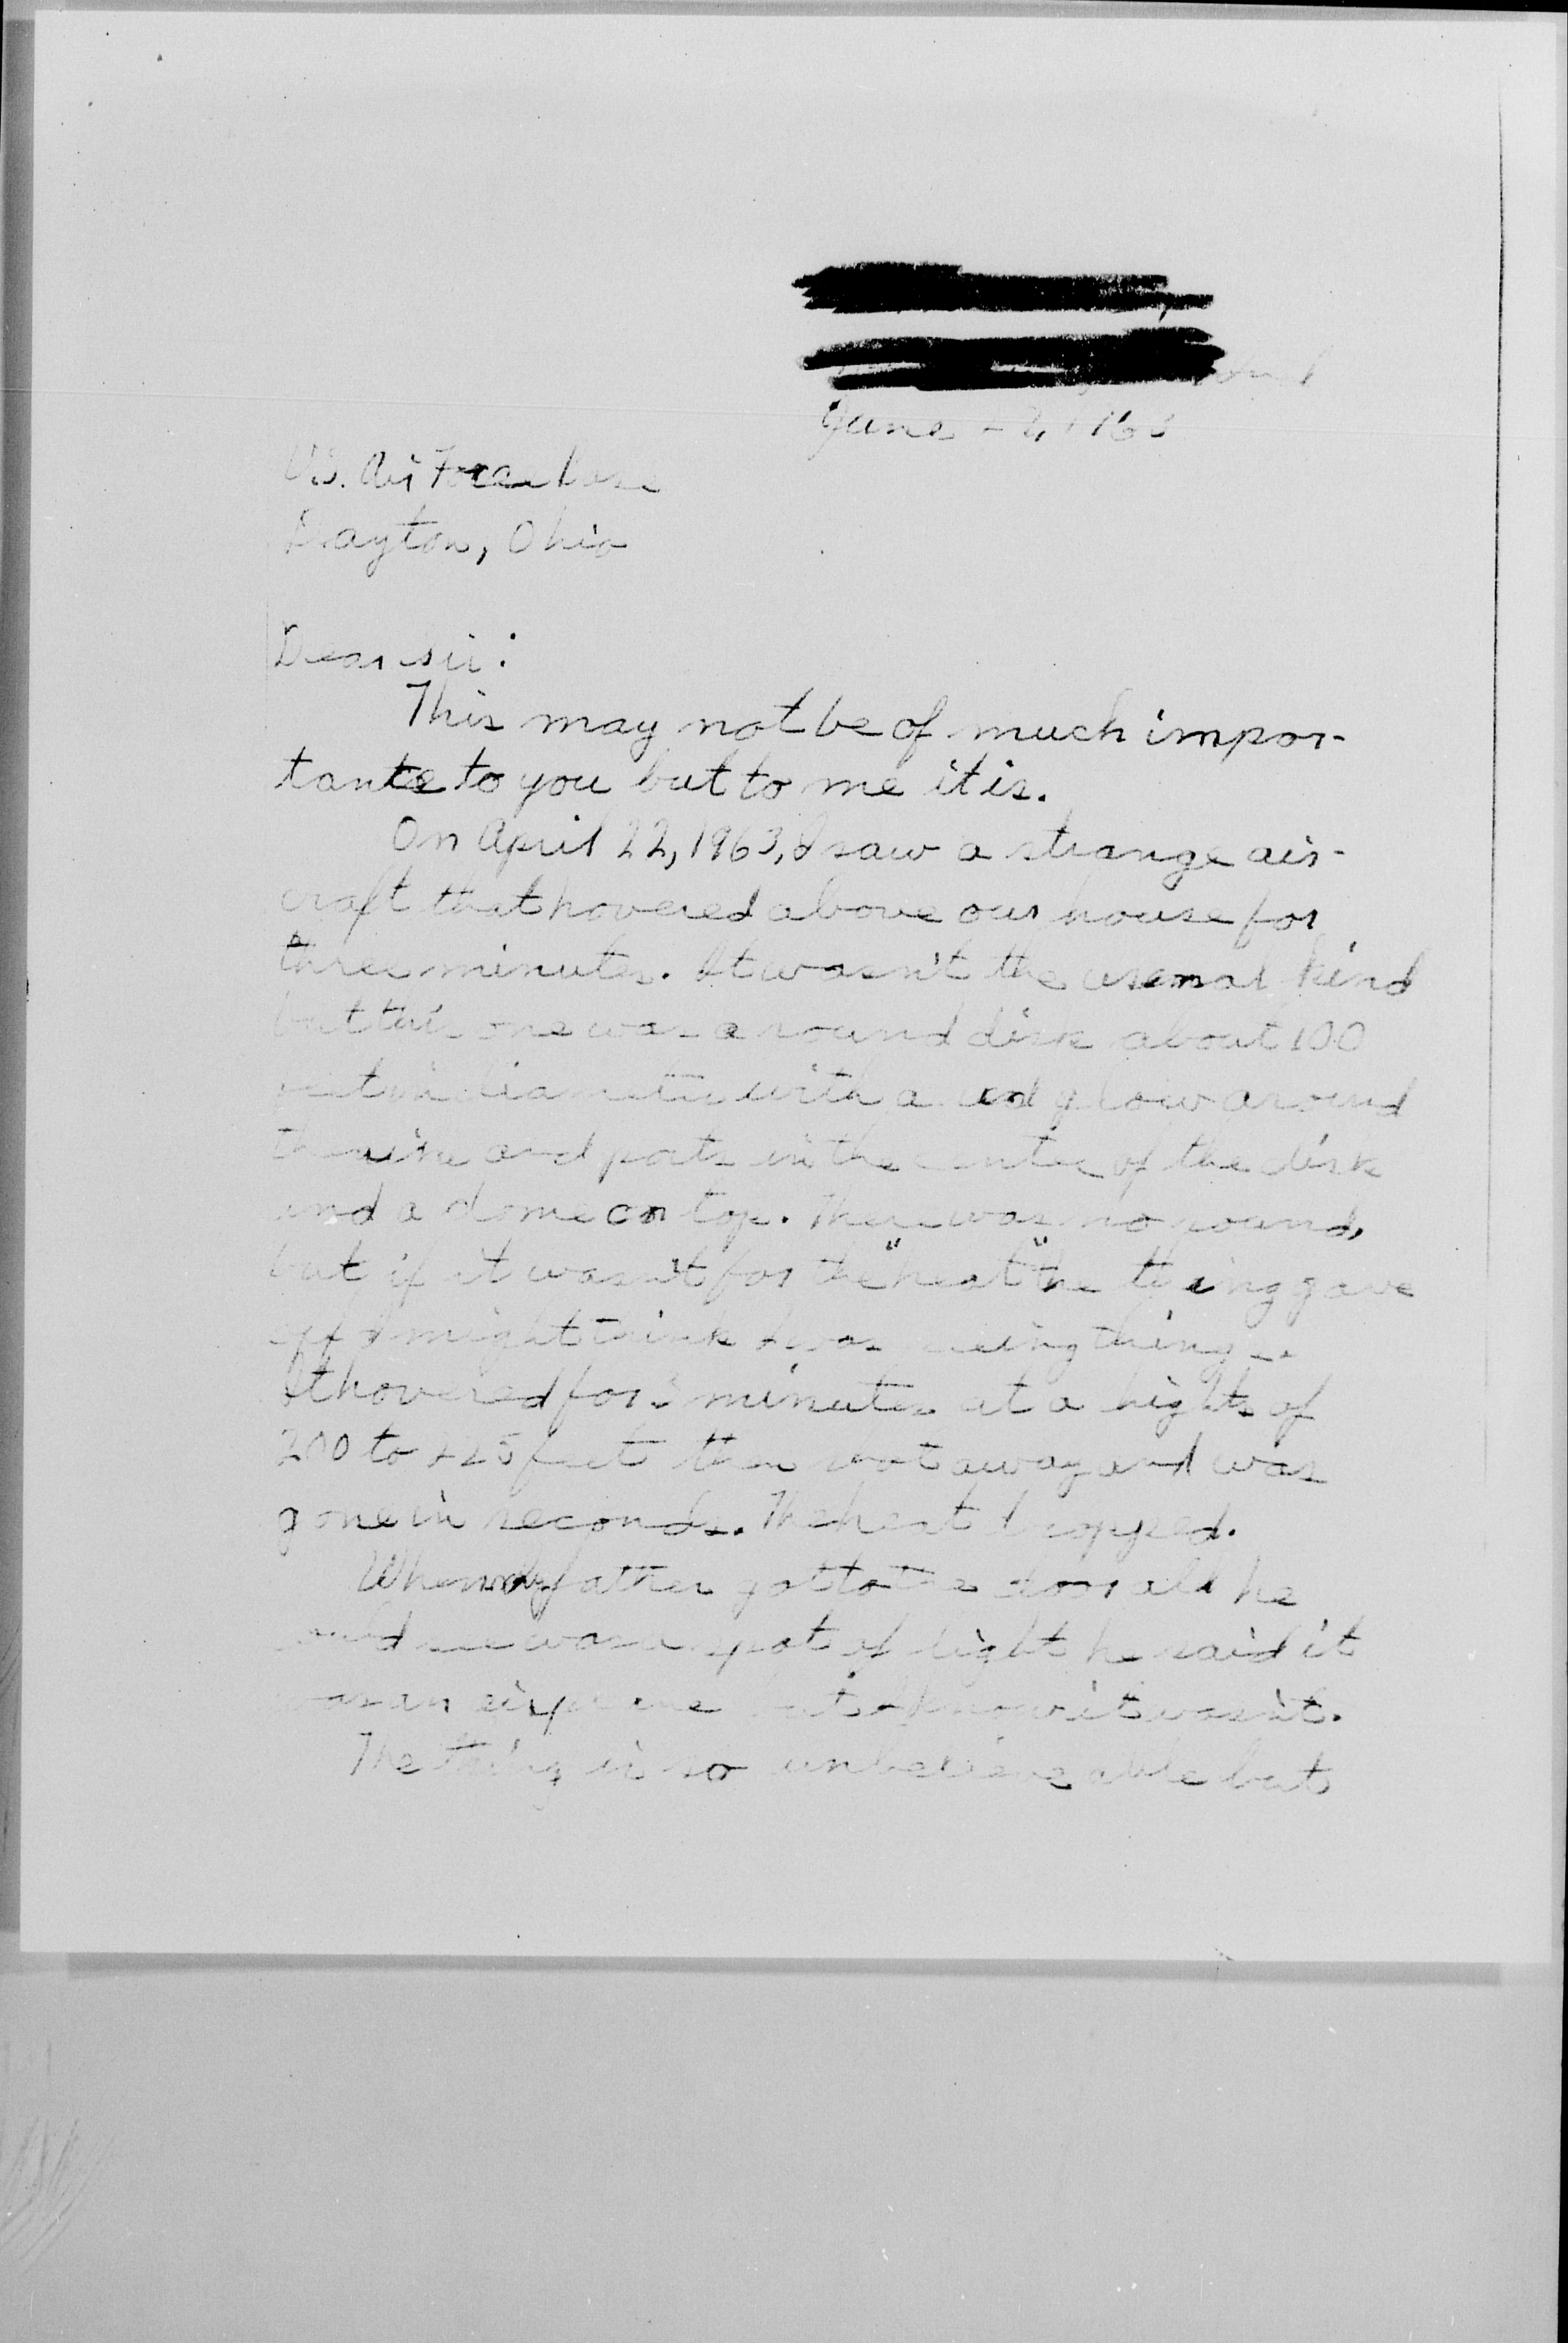 June 1963
U.S. Air Force base
Dayton, Ohio
Dear sir:
This may not be of much impor-
tance to you but to me it is.
On April 22, 1963, I saw a strange air-
craft that hovered above our house for
three minutes. It wasn't the usual kind
but this one was a round disk about 100
feet in diameter with a red glow around
the and ports in the center of the disk
and a dome on top. There was no sound,
but if it wasn't for the "heat" the thing gave
off I might think I was seeing things.
It hovered for 3 minutes at a hights of
200 to 225 feet then shot away and was
gone in seconds. The heat dropped.
When my father got to the door all he
could see was a spot of light he said it
was an airplane but I know it wasn't.
The thing is so unbelieveable but